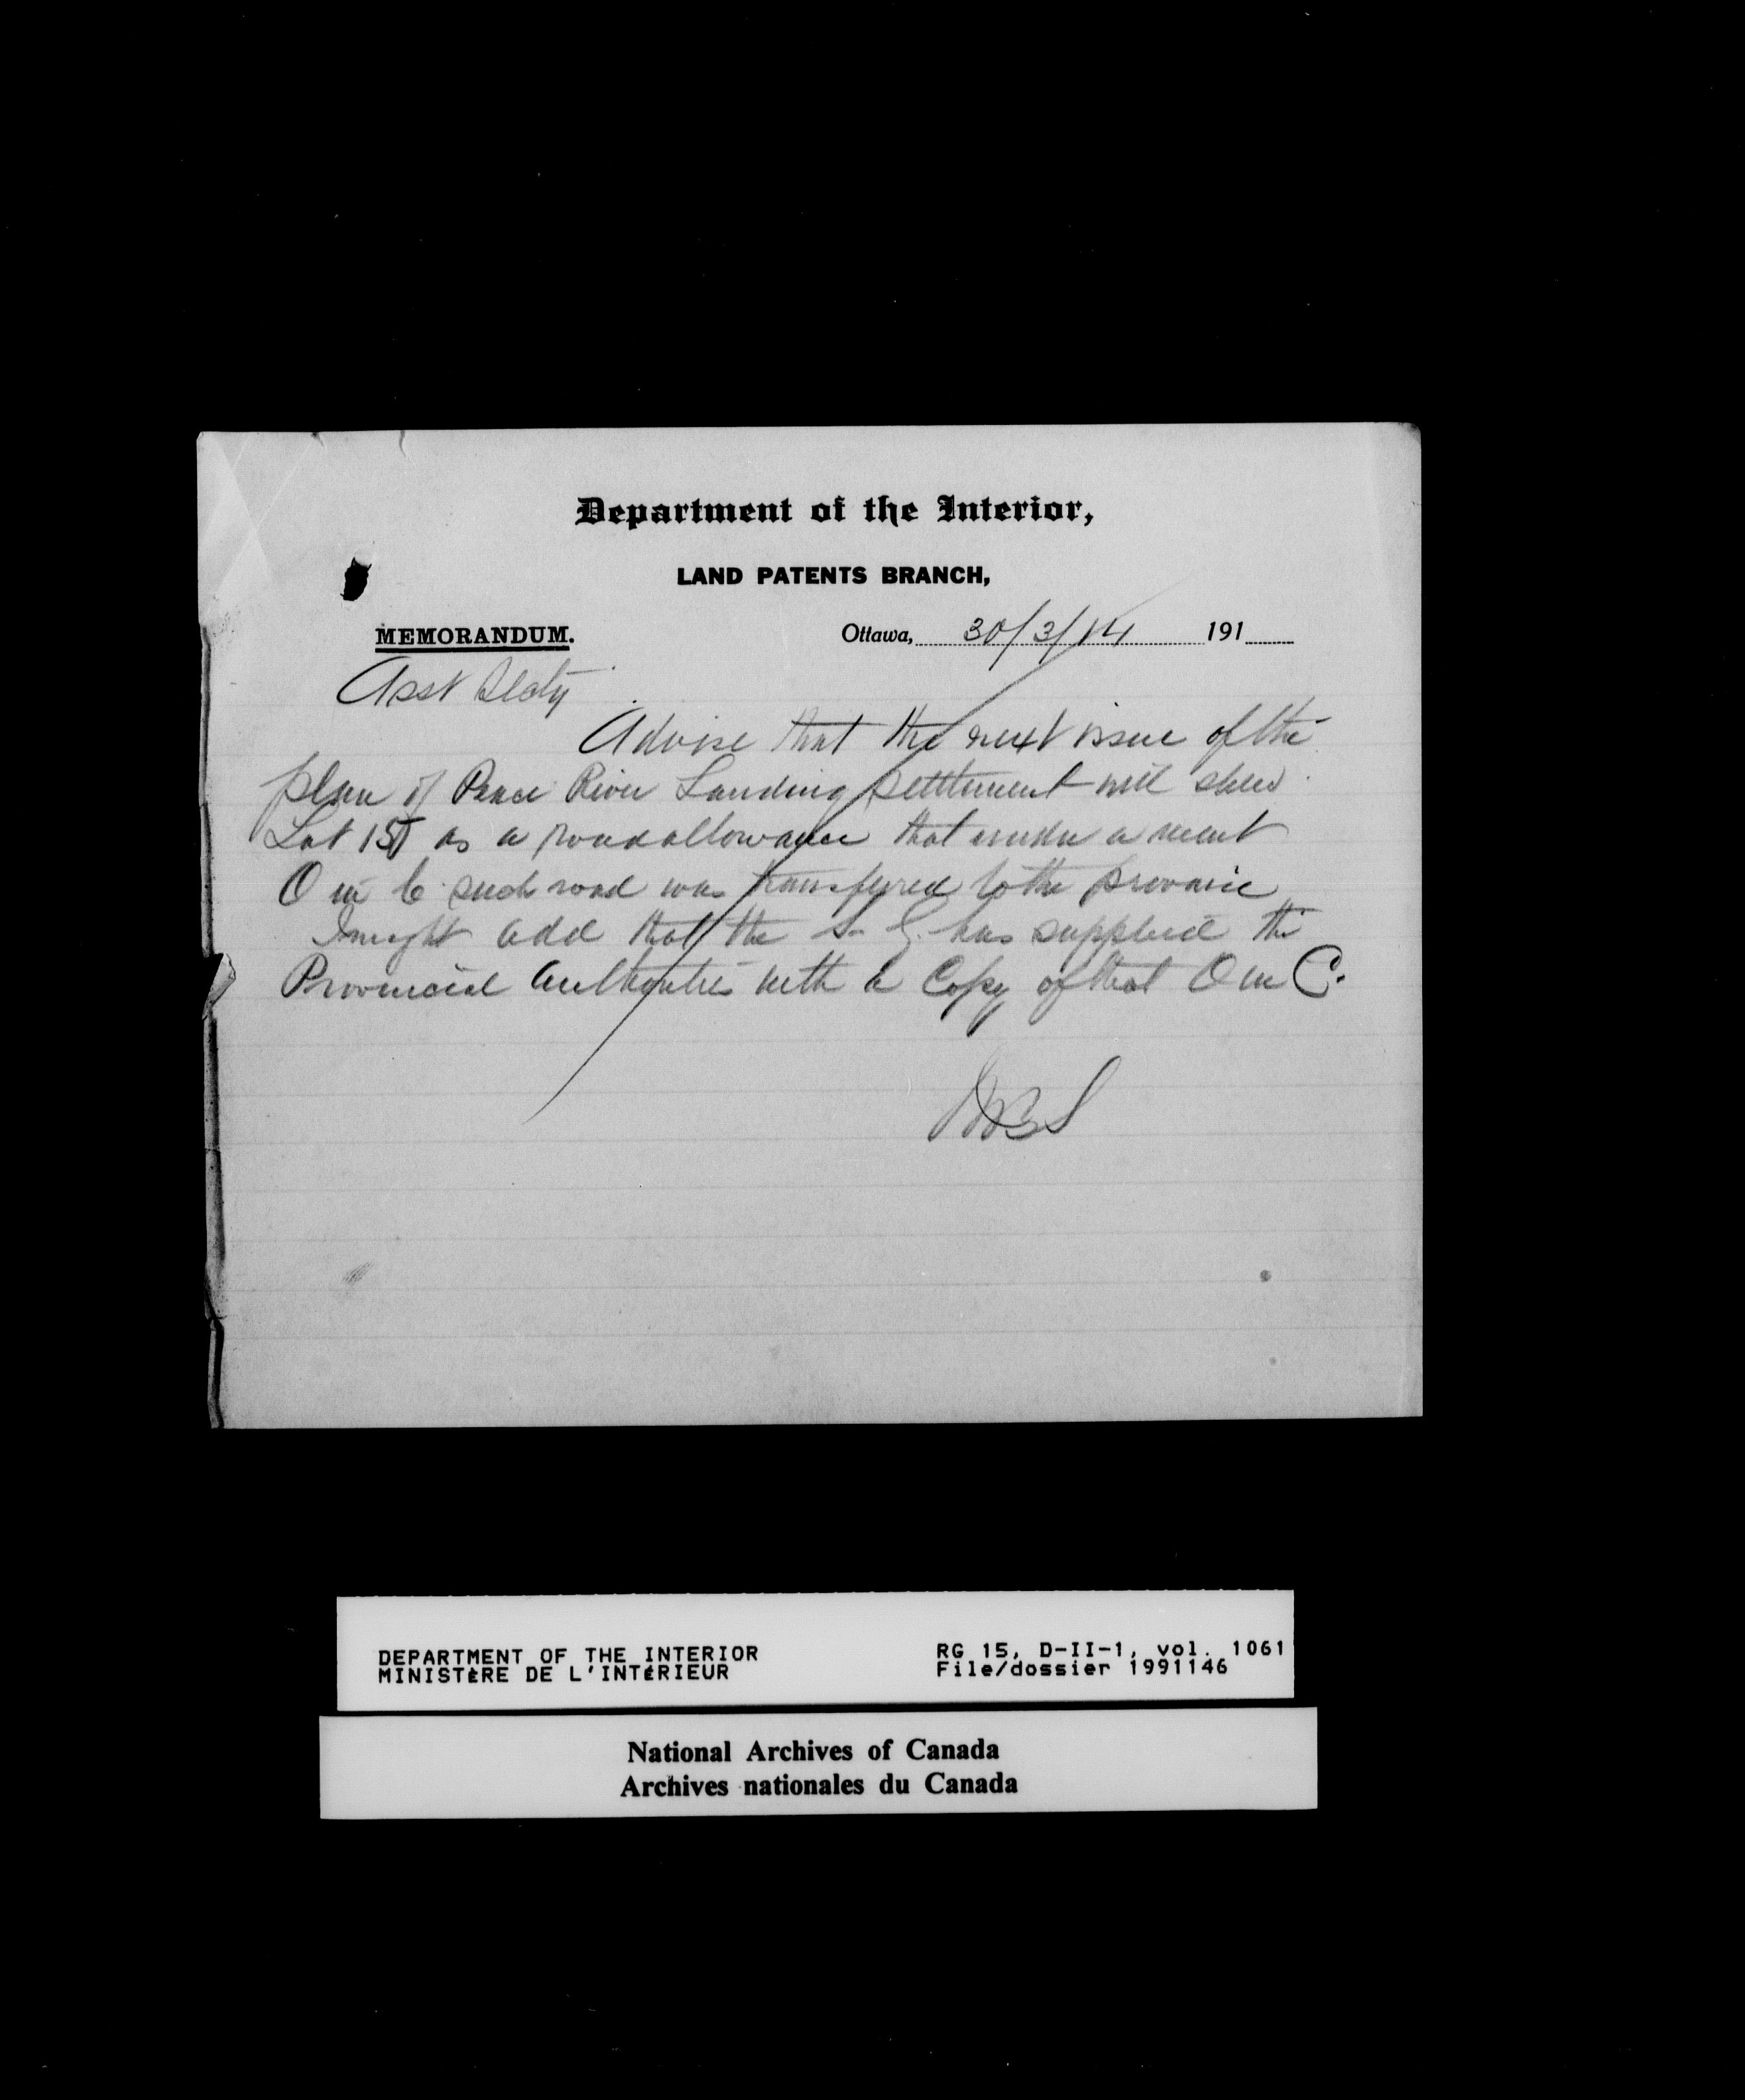 Department of the Interior,
LAND PATENTS BRANCH,
MEMORANDUM.
Ottawa, 30/3/14 191
Asst Secty
Advise that the next issue of the
plan of Peace River Landing Settlement will shew
Lot 15 as a road allowance that under a recent
O in C such road was transferred to the province
I might add that the S. G. has supplied the
Provincial Authorities with a Copy of that O in C.
DEPARTMENT OF THE INTERIOR
MINISTÈRE DE L'INTÉRIEUR
RG 15, D-II-1, vol. 1061
File/dossier 1991146
National Archives of Canada
Archives nationales du Canada